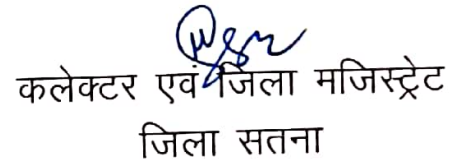 कलेक्टर एवं जिला मजिस्ट्रेट
जिला सतना